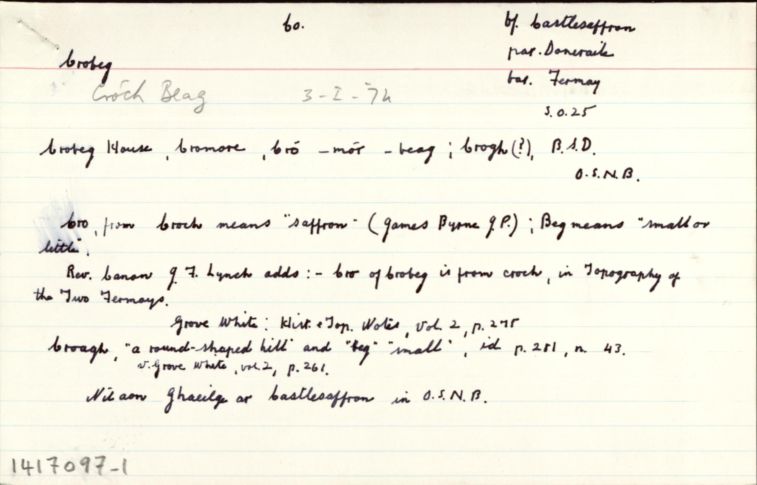 Co.
bf Castlesaffron
par. Doneraile
bar. Fermoy
S.O.25
Crobeg
Cróch Beag 3-I-74
Crobeg House, Cromore, Cró -mór -beag; Crogh(?), B.S.D.
O.S.N.B.
Cro, from Croch means "saffron" (James Byrne J.P.); Beg means "small or
little".
Rev. Canon J. F. Lynch adds:- Cro of Crobeg is from croch, in Topography of
the Two Fermoys.
Grove White: Hist & Top. Notes, vol. 2, p. 275
Croagh, "a round-shaped hill" and "beg" "small", id p. 281, n. 43.
v. Grove White, vol. 2, p. 261.
Níl aon Ghaeilge ar Castlesaffron in O.S.N.B.
1417097-1